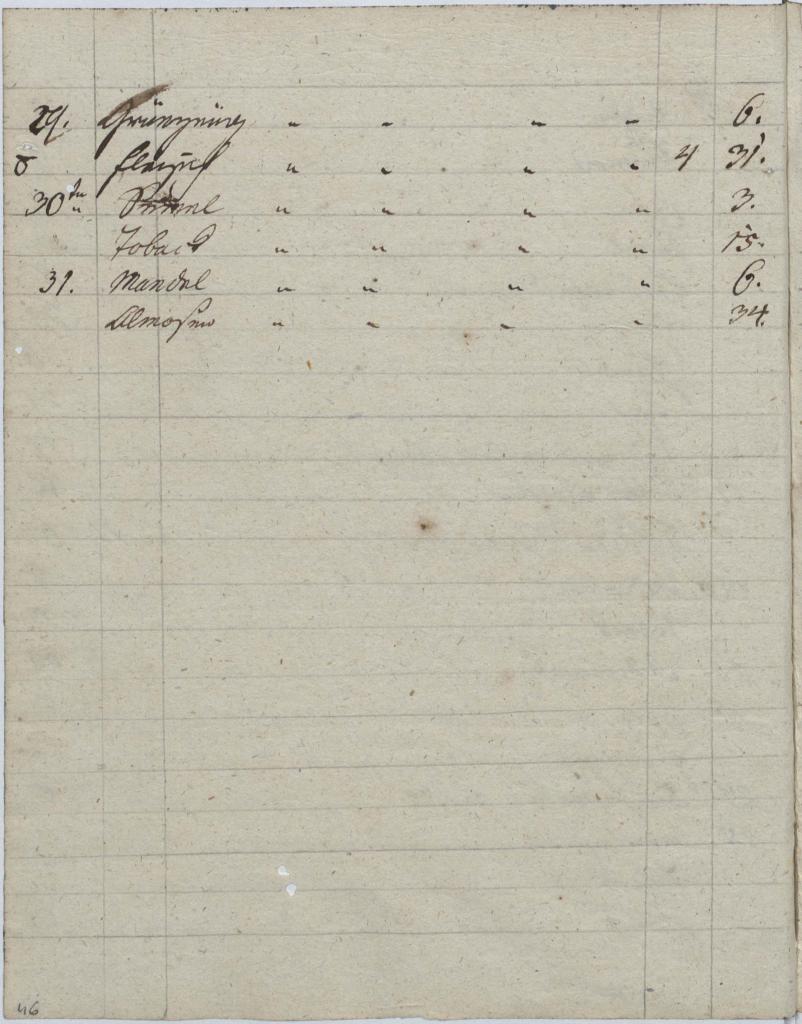 29. Grünzeug " " " " 6.
Fleisch " " " " 4 31.
30ten Semel " " " " 3.
Toback " " " " 15.
31. Mandel " " " " 6.
Almosen " " " " 34.
46